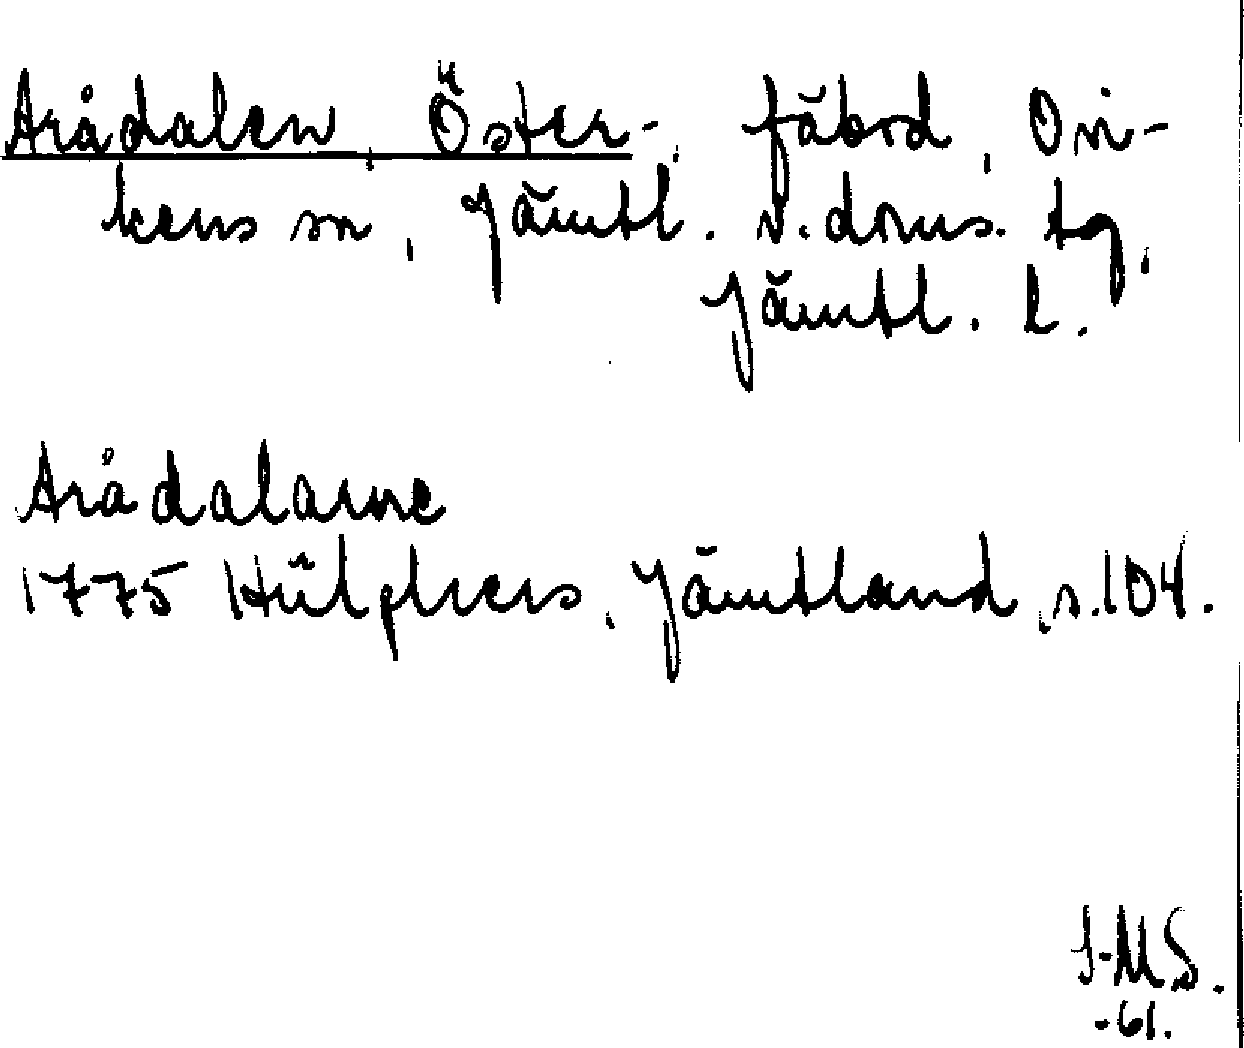 Arådalen, Öster-, fäbod, Ovi-
kens sn, Jämtl. v. doms. tg,
Jämtl. l.
Arådalarne
1775 Hülphers, Jämtland, s. 104.
I-MS.
-61.